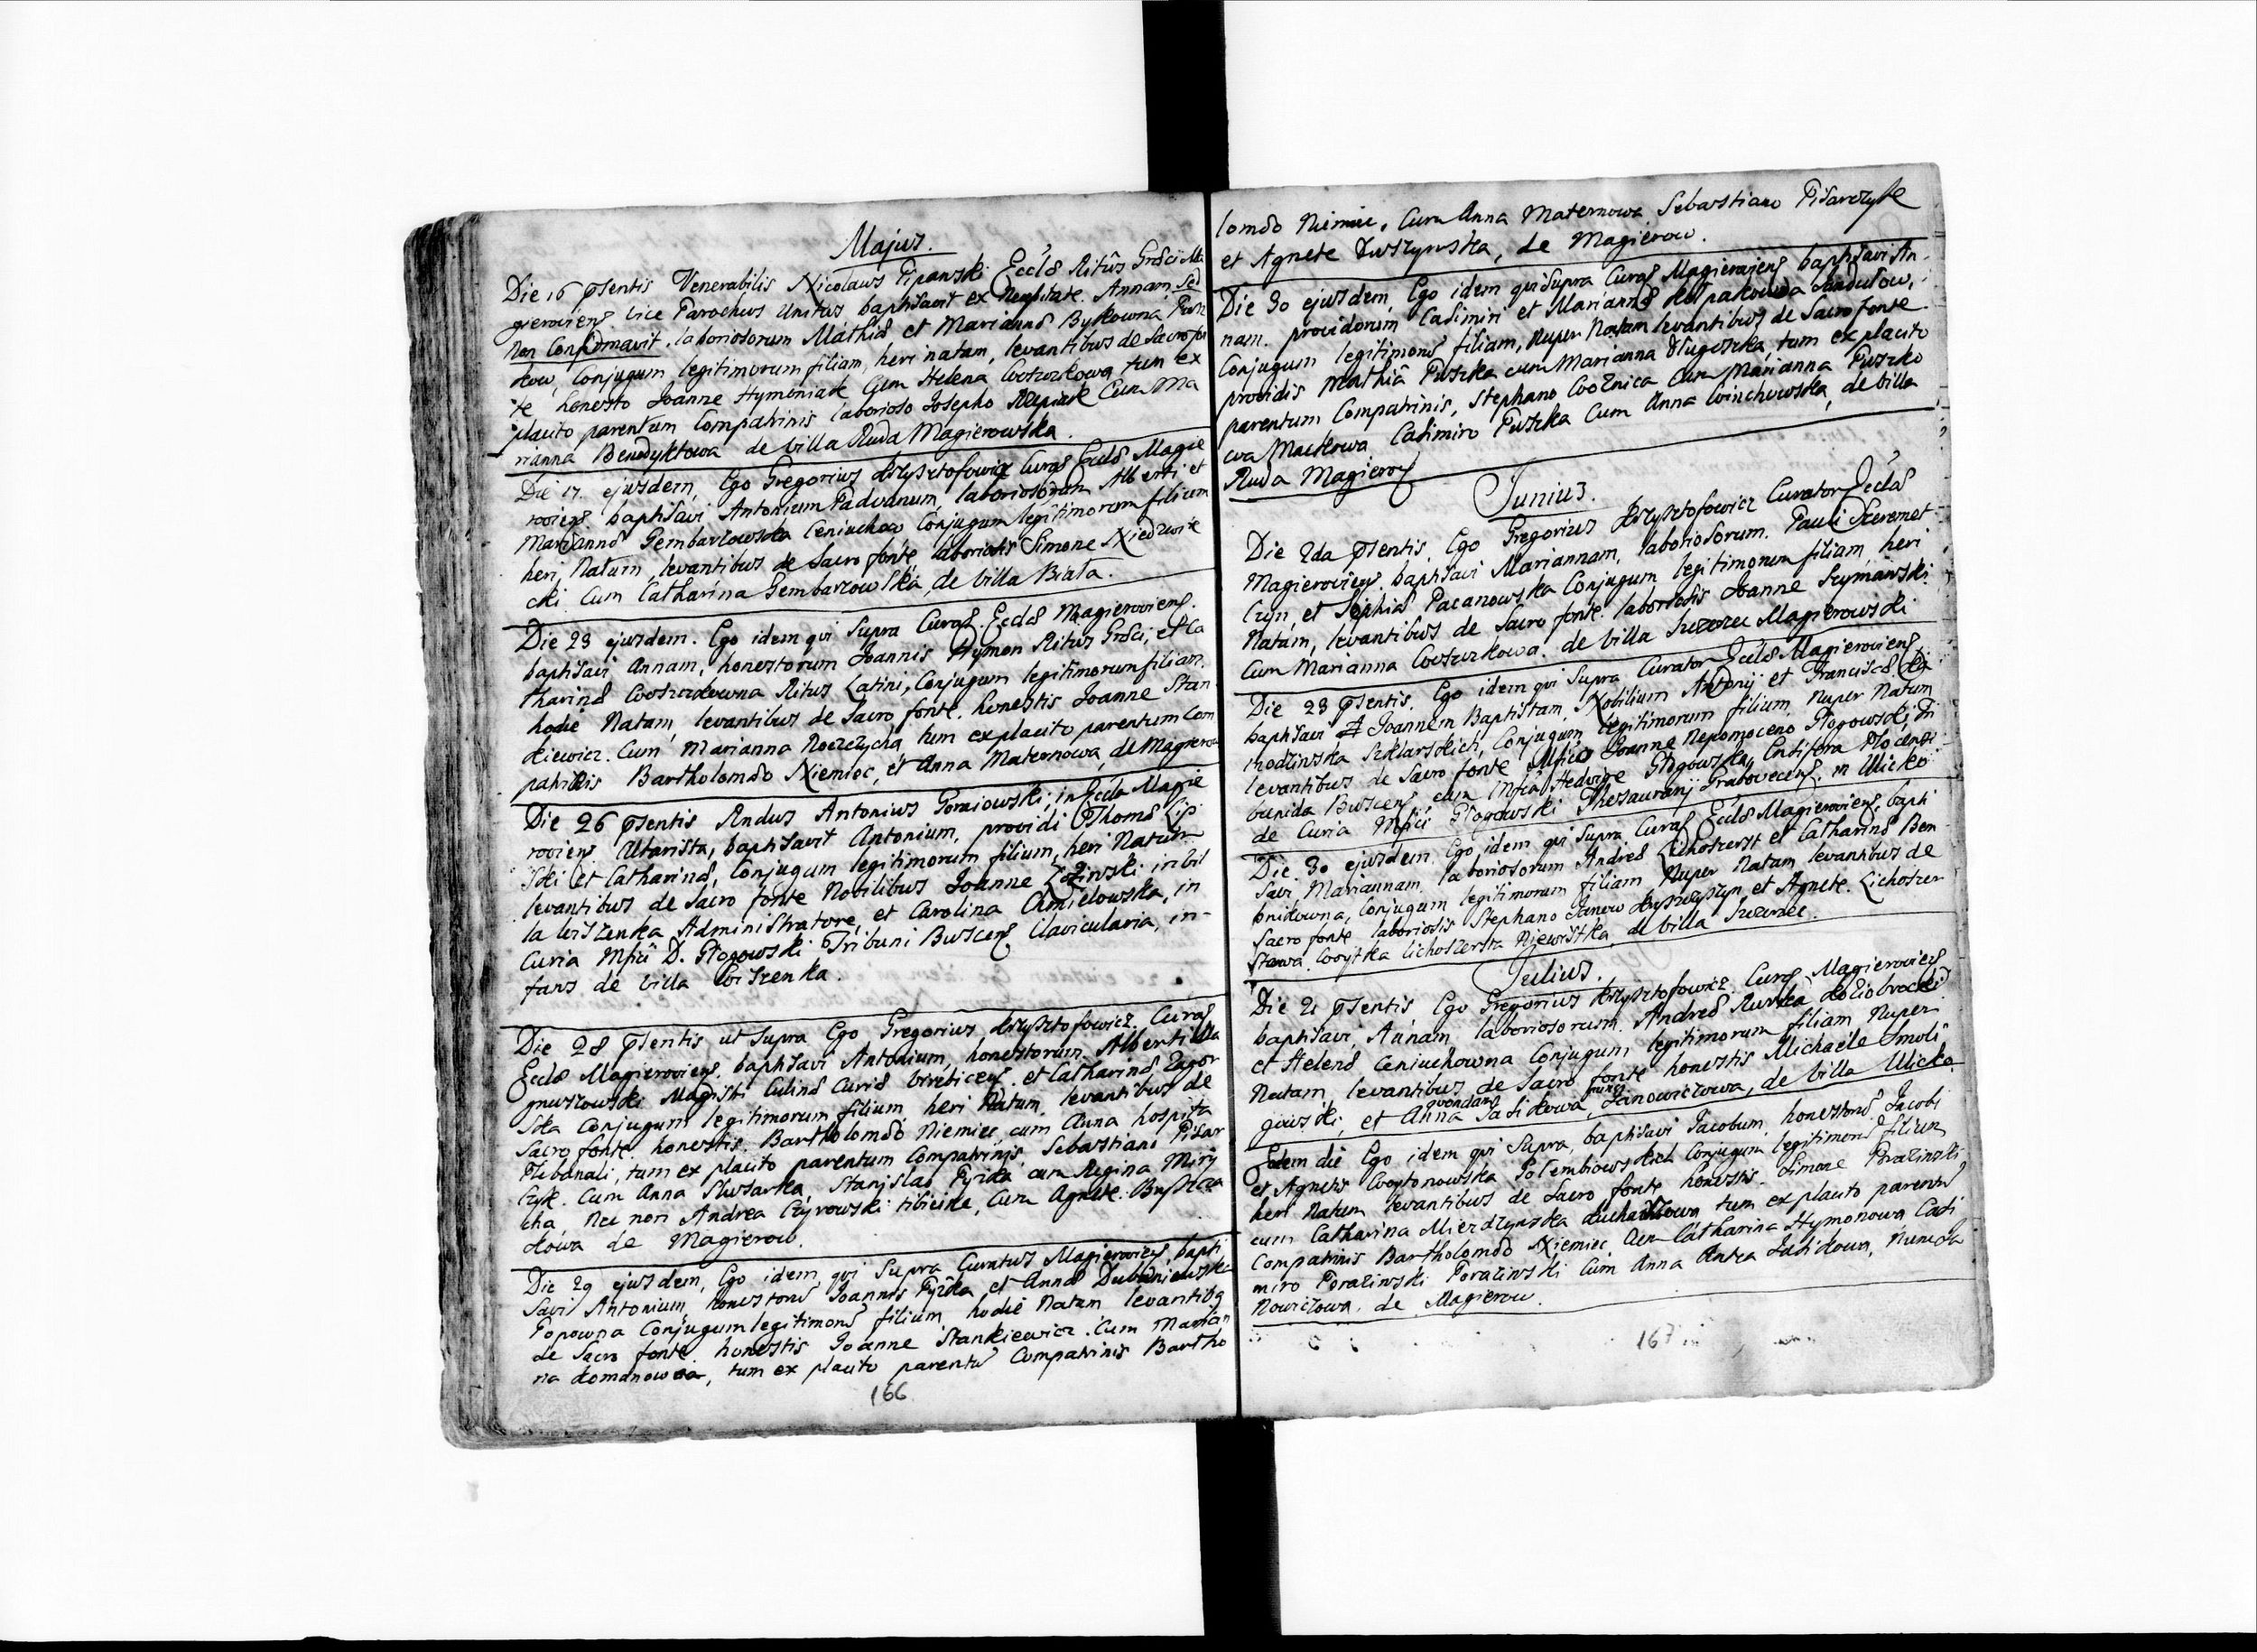 Majus.
Die 16 psentis Venerabilis Nicolaus Pipanski Eccla Ritûs Græci Ma
gierovieng. vice Parochus Unitus baptisavit ex Necessitate. Annam, Sed
Non Confirmavit, laboriosorum Mathiæ et Mariannæ Bykowna
kow, Conjugum legitimorum filiam, heri natam, levantibus de Sacro fon
te honesto Joanne Hymoniak Cum Helena tum ex
placito parentum Compatrinis laborioso Josepho Rzepiak Cum Ma
rianna Benedyktowa de Villa Ruda Magierowska.
Die 17. ejusdem, Ego Gregorius Krzysztofowicz Curat Eccla Magie
rovieng. baptisavi Antonium Paduanum, laboriosorum Alberti et
Mariannæ Gembarzowska Ceniuchow Conjugum legitimorum filium
heri Natum, levantibus de Sacro fonte laboriosis Simone Niedzwie
cki Cum Catharina Gembarzowska, de Villa Biała.
Die 23 ejusdem. Ego idem qui Supra Curat. Eccla Magierovieng.
baptisavi Annam, honestorum Joannis Hymon Ritus Græci, et Ca
tharinæ Ritus Latini, Conjugum legitimorum filiam
hodie Natam, levantibus de Sacro fonte. honestis Joanne Stan
kiewicz. Cum Marianna tum ex placito parentum Com
patrinis Bartholomæo Niemiec, et Anna Maternowa, de Magierow
Die 26 psentis Rndus Antonius Goraiowski, in Eccla Magie
rovieng. Altarista, baptisavit Antonium, providi Thomæ Lip
ski et Catharinæ, Conjugum legitimorum filium, heri Natum
levantibus de Sacro fonte Nobilibus Joanne Łoziwski in Vil
la Wiszenka Administratore, et Carolina Chmielowska, in
Curia Mfici D. Głogowski Tribuni Busceng Clavicularia, in-
fans de Villa Wiszenka.
Die 28 psentis ut Supra Ego Gregorius Krzysztofowicz. Curat
Eccla Magierovieng. baptisavi Antonium, honestorum Alberti Wa
gnuszowski Magistri Culinæ Curiæ et Catharinæ Zagor
ska Conjugum legitimorum filium heri Natum. levantibus de
Sacro fonte. honestis. Bartholomæo Niemiec, cum Anna hospita
Plebanali, tum ex placito parentum Compatrinis Sebastiani Pisar
czyk. Cum Anna Slusarka, Stanislao Pyrka cum Regina Miry
cha, Nec non Andrea Czyrowski tibicine, Cum Agnete
kowa de Magierow.
Die 29 ejusdem, Ego idem, qui Supra Curatus Magierovieng. bapti
savi Antonium, honestorum Joannis Pyrka et Annæ Dubniewska
Popowna Conjugum legitimorum filium, hodie Natum levantibus
de Sacro fonte. honestis Joanne Stankiewicz. Cum Marian
na Romanowna, tum ex placito parentum Compatrinis Bartho
166
lomæo Niemiec, Cum Anna Maternowa Sebastiano Pisarczyk
et Agnete Duszynska, de Magierow.
Die 30 ejusdem, Ego idem qui Supra Curat Magierovieng. baptisavi An
nam. providorum Casimiri et Mariannæ
Conjugum legitimorum filiam, Nuper Natam levantibus de Sacro fonte
providis Mathiâ Puszka cum Marianna Długoszka, tum ex placito
parentum Compatrinis, Stephano Woznica Cum Marianna Puszko
wa Mackowa Casimiro Puszka Cum Anna Winchowska, de Villa
Ruda Magierov
Junius.
Die 2da psentis. Ego Gregorius Krzysztofowicz Curator Eccla
Magierovieng. baptisavi Mariannam, laboriosorum. Pauli Szeremet
Czyn, et Sophiæ Pacanowska Conjugum legitimorum filiam, heri
Natam, levantibus de Sacro fonte. laboriosis Joanne Szymanski
Cum Marianna de Villa Magierowski
Die 23 psentis, Ego idem qui Supra Curator Eccla Magierovieng.
baptisavi Joannem Baptistam, Nobilium Antonij et Franciscæ Ra
chodzinska Szklarskich, Conjugum legitimorum filium, Nuper Natum
levantibus de Sacro fonte Mfico Joanne Nepomuceno Głogowski, Tri
bunida Busceng cum Mfica Hedvige Głogowska, Ensifera
de Curia Mfici Głogowski Thesaurarij Grabovieceng. in Uicko
Die. 30 ejusdem. Ego idem qui Supra Curat Eccla Magierovieng. bapti
savi. Mariannam laboriosorum Andreæ Lichoszerst et Catharinæ Ben
Conjugum legitimorum filiam Nuper Natam levantibus de
Sacro fonte laboriosis Stephano Janow et Agnete. Lichoszer
stowa. Woytka Lichoszersta Niewistka, de Villa
Julius.
Die 21 psentis, Ego Gregorius Krzysztofowicz. Curat Magierovieng
baptisavi, Annam laboriosorum. Andreæ
et Helenæ Ceniuchowna Conjugum legitimorum filiam, Nuper
Natam, levantibus de Sacro fonte honestis Michaele Smoli
giwski, et Anna quondam Sasikowa, nunc Janowiczowa, de Villa Uicko.
Eodem die Ego idem qui Supra, baptisavi Jacobum, honestorum Jacobi
et Agnetis Woytonowska Golembiowskich Conjugum legitimorum filium
heri Natum levantibus de Sacro fonte honestis. Simone Porazinski
cum Catharina Mierdzynska tum ex placito parentum
Compatrinis Bartholomæo Niemiec cum Catharina Hymonowa Casi
miro Porazinski Porazinski Cum Anna Antea Sasikowa, Nunc Ja
nowiczowa. de Magierow.
167